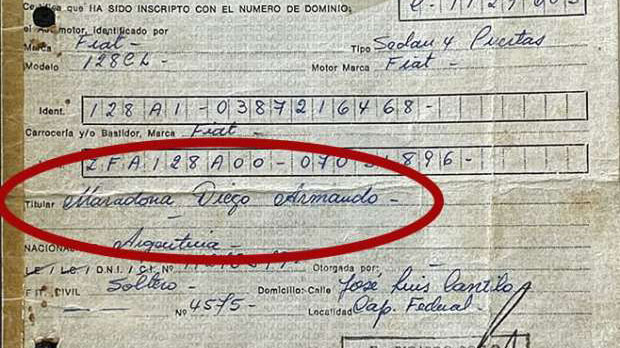 Certifica que HA SIDO INSCRIPTO CON EL NUMERO DE DOMINIO:
el Automotor, identificado por
Marca Fiat - Tipo Sedan 4 Puertas
Modelo 128 CL - Motor Marca Fiat -
Ident. 128 A1-038 7216468-
Carrocería y/o Bastidor, Marca Fiat -
ZFA128A00-070 896-
Titular Maradona Diego Armando -
NACIONAL Argentina -
L E / L C / D.N.I. / C.I. Nº Otorgada por: -
E T. CIVIL Soltero - Domicilio: Calle José Luis Cantilo
Nº 4575 - Localidad Cap. Federal -